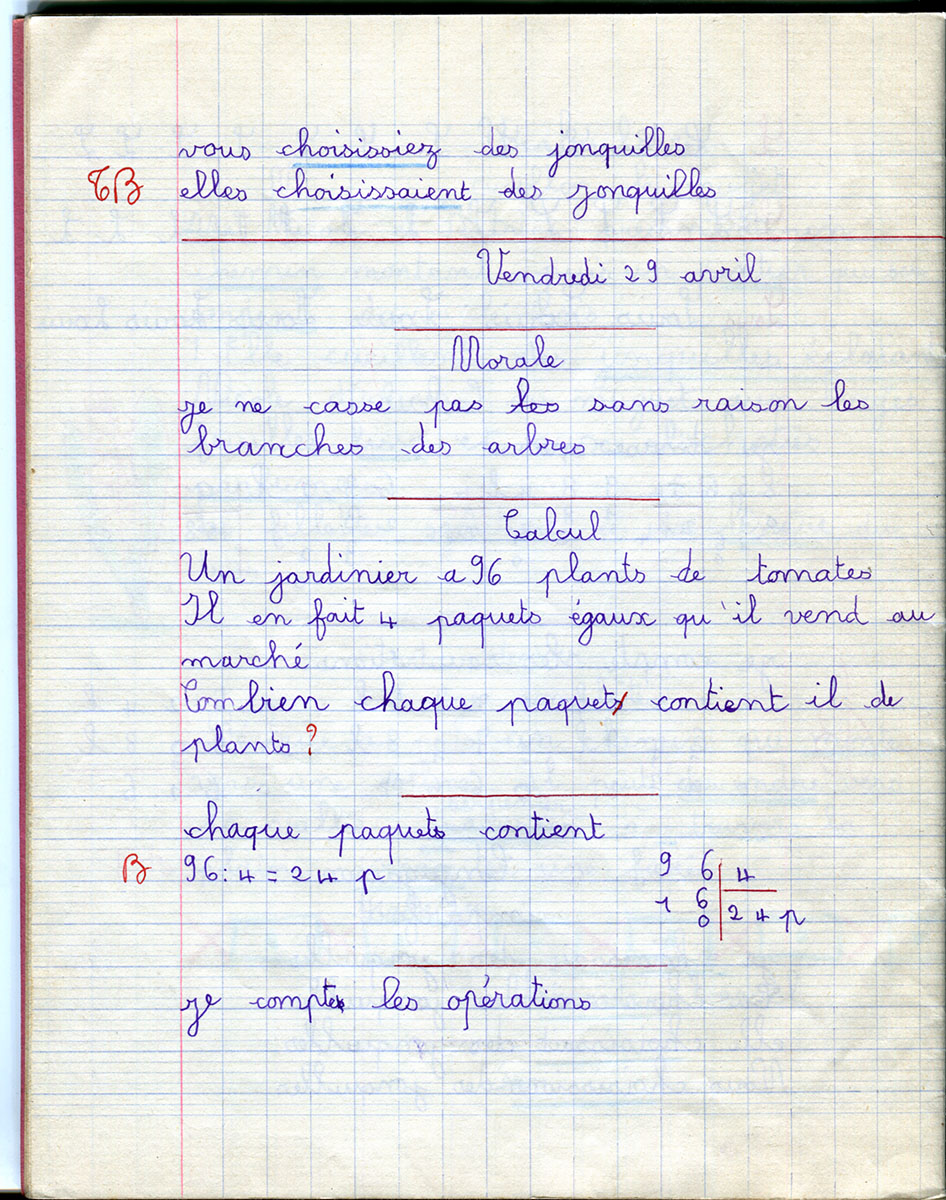 vous choisissiez des jonquilles
TB elles choisissaient des jonquilles
Vendredi 29 avril
Morale
je ne casse pas les sans raison les
branches des arbres
Calcul
Un jardinier a 96 plants de tomates
Il en fait 4 paquets égaux qu'il vend au
marché
Combien chaque paquets contient il de
plants ?
chaque paquets contient
B 96 : 4 = 24 p
9 6 4
1 6 24 p
0
je compte les opérations